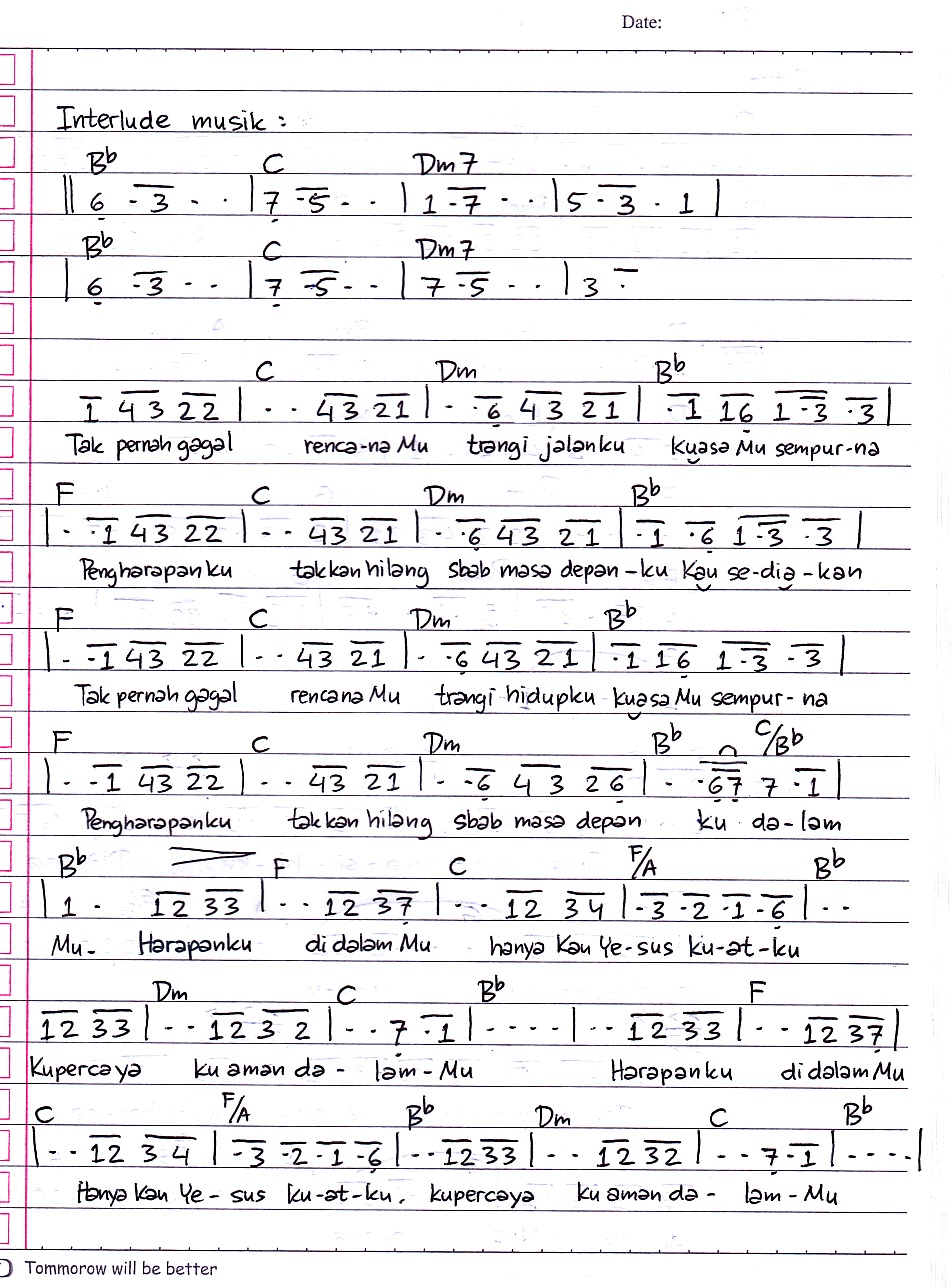 Date:
Interlude musik :
Bb C Dm7
|| 6 .3 . . | 7 .5 . . | 1 .7 . . | 5 .3 . 1 |
Bb C Dm7
| 6 .3 . . | 7 .5 . . | 7 .5 . . | 3 .
C Dm Bb
1 43 22 | . . 43 21 | . .6 43 21 | .1 16 1.3 .3 |
Tak pernah gagal renca-na Mu trangi jalanku kuasa Mu sempur-na
F C Dm Bb
| . .1 43 22 | . . 43 21 | . .6 43 21 | .1 .6 1.3 .3 |
Pengharapan ku takkan hilang sbab masa depan-ku Kau se-dia-kan
F C Dm Bb
| . .1 43 22 | . . 43 21 | . .6 43 21 | .1 16 1.3 .3 |
Tak pernah gagal rencana Mu trangi hidupku kuasa Mu sempur-na
F C Dm Bb C/Bb
| . .1 43 22 | . . 43 21 | . .6 43 26 | . .67 7 .1 |
Pengharapanku takkan hilang sbab masa depan ku da-lam
Bb F C F/A Bb
| 1 . 12 33 | . . 12 37 | . . 12 34 | .3 .2 .1 .6 | . .
Mu- Harapanku di dalam Mu hanya Kau Ye-sus ku-at-ku
Dm C Bb F
12 33 | . . 12 32 | . . 7 .1 | . . . . | . . 12 33 | . . 12 37 |
Kupercaya ku aman da- lam-Mu Harapanku di dalam Mu
C F/A Bb Dm C Bb
| . . 12 34 | .3 .2 .1 .6 | . . 12 33 | . . 12 32 | . . 7 .1 | . . . . |
Hanya Kau Ye-sus ku-at-ku. kupercaya ku aman da- lam-Mu
Tommorow will be better